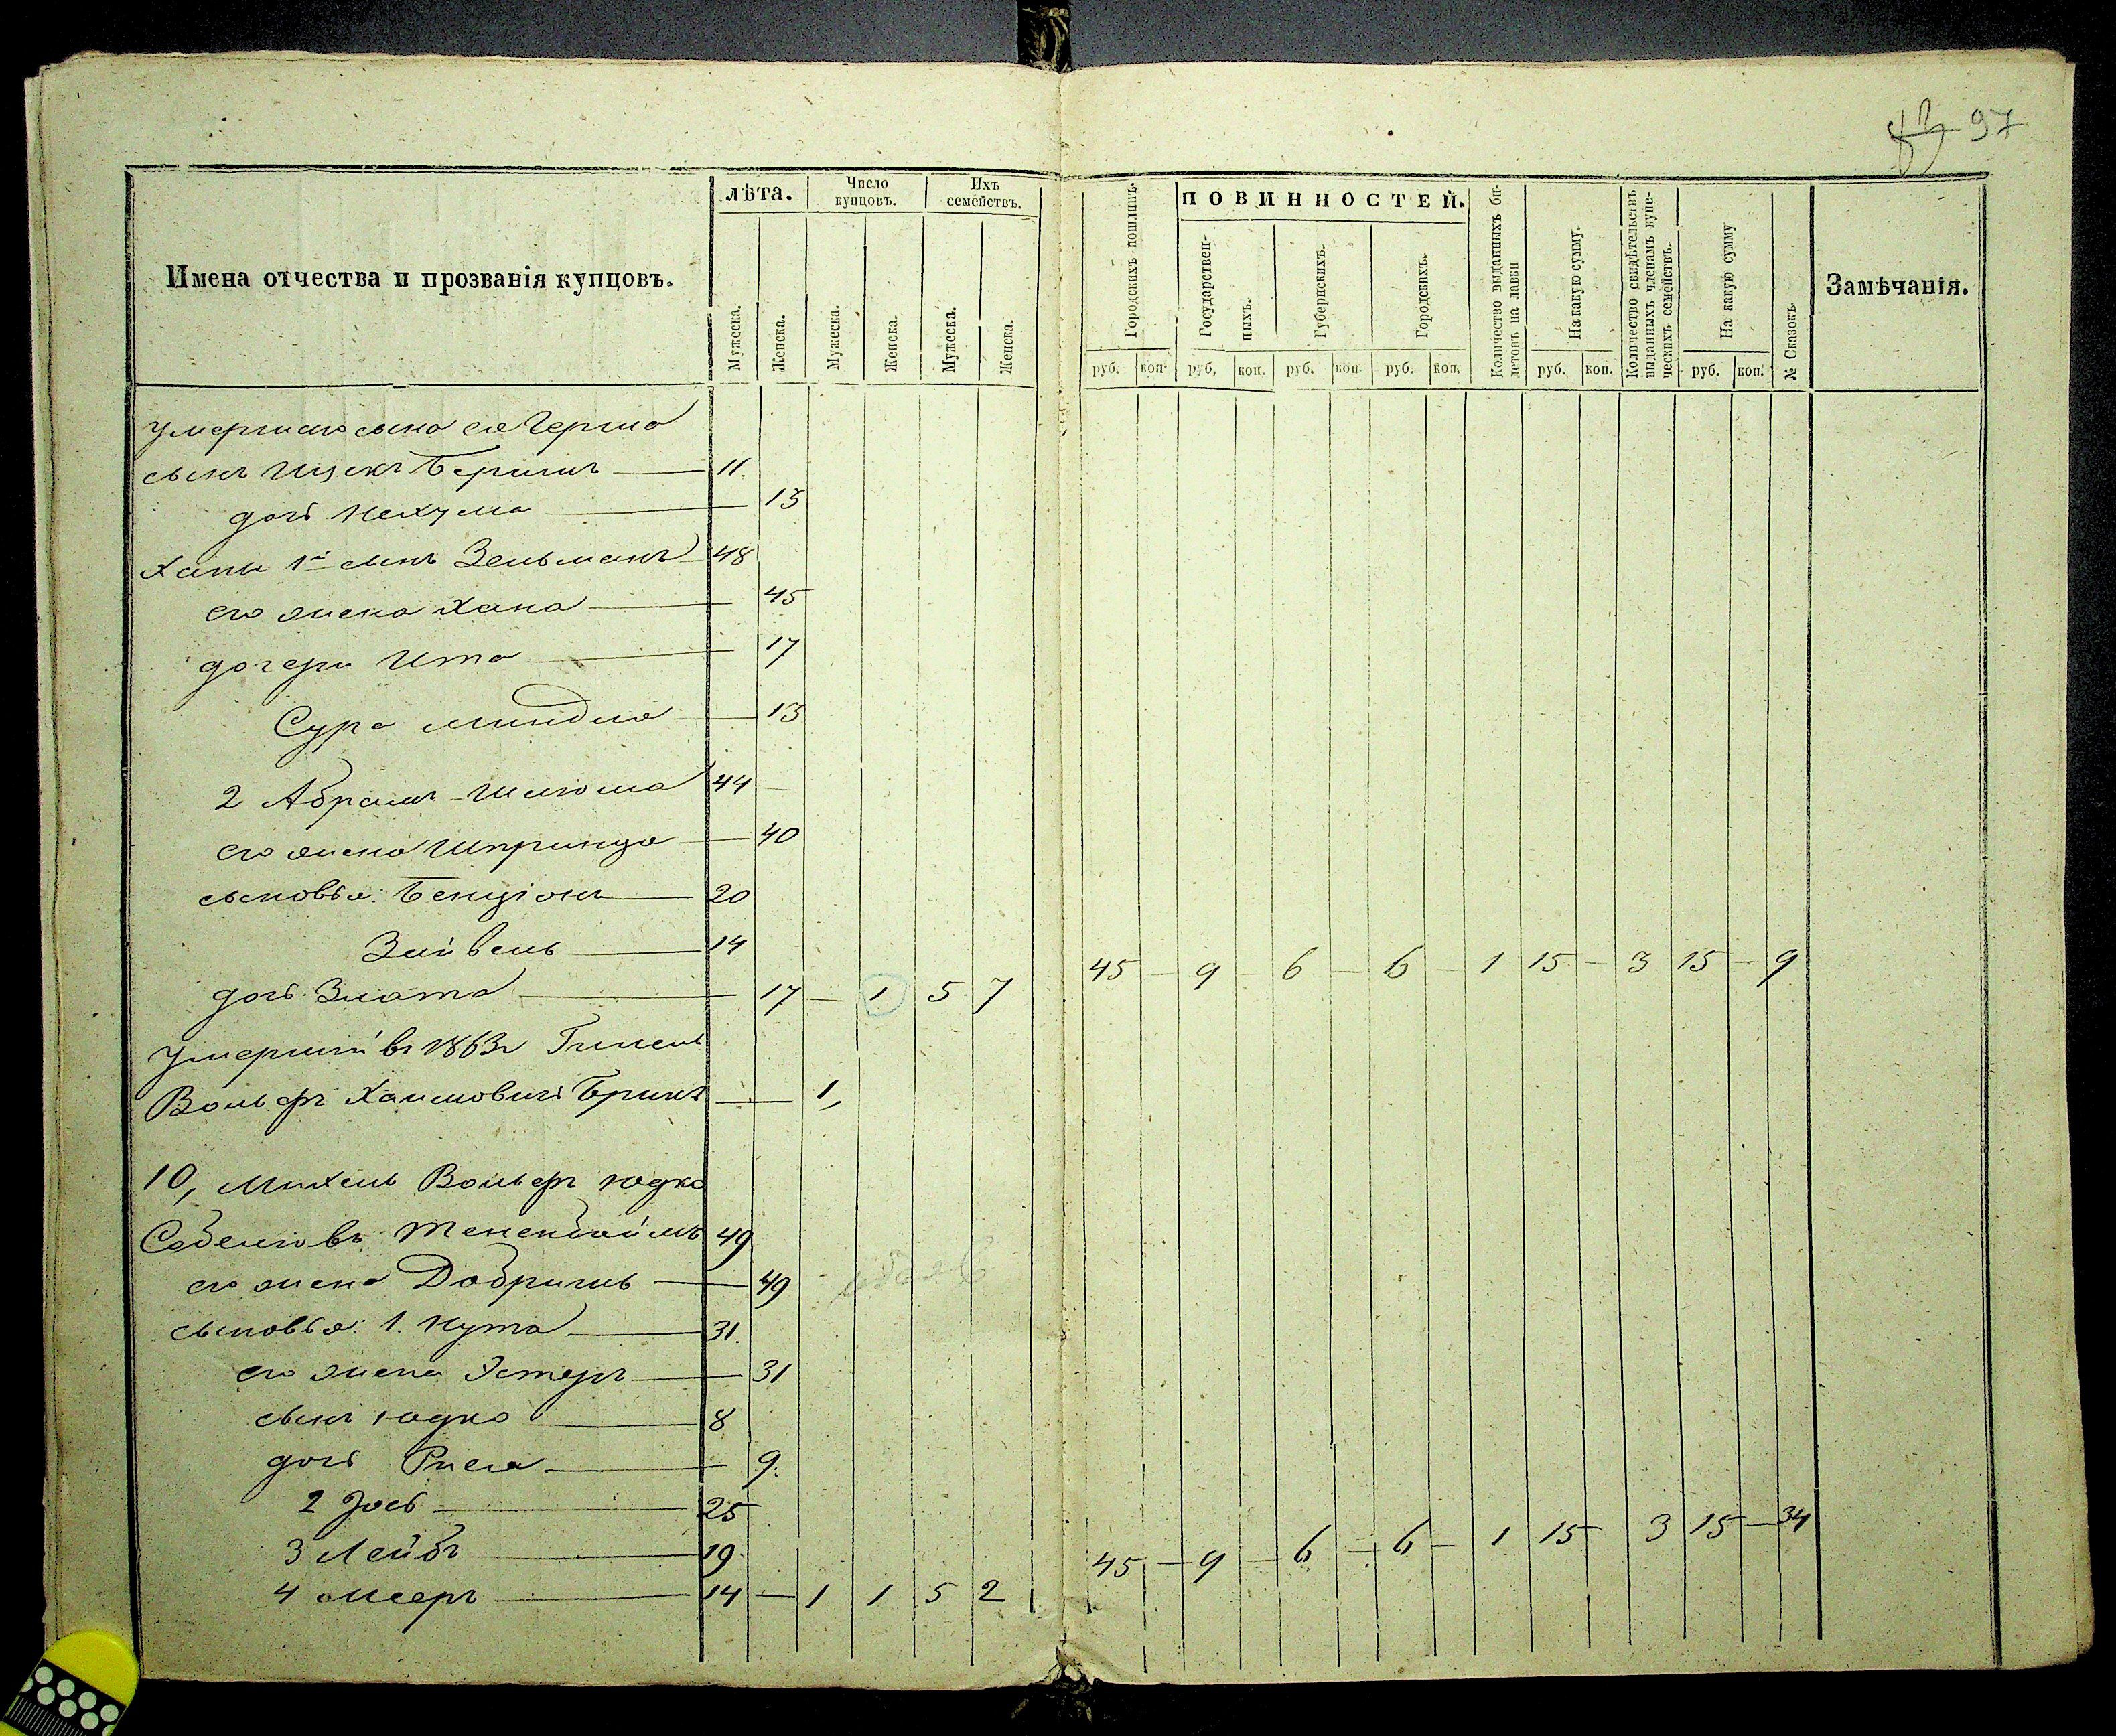 97
Имена отчества и прозванія купцовъ.
лѣта.
Число купцовъ.
Ихъ семействъ.
Мужеска.
Женска.
Мужеска.
Женска.
Мужеска.
Женска.
Городскихъ пошлинъ.
ПОВИННОСТЕЙ.
Государственныхъ.
Губернскихъ.
Городскихъ.
Количество выданныхъ билетовъ на лавки
На какую сумму.
Количество свидѣтельствъ выданныхъ членамъ купеческихъ семействъ.
На какую сумму
№ Сказокъ
Замѣчанія.
руб. коп. руб. коп. руб. коп. руб. коп. руб. коп. руб. коп.
умершаго сына ея
сынъ Ицекъ 11.
дочь Нехума 13
Ханы 1й сынъ Зельманъ 48
его жена Хана 45
дочери Ита 17
Сура Миндля 13
2 Абрамъ-Шлюма 44 —
его жена Шпринца 40
сыновья: Бенціонъ 20
Зайвель 14
45 — 9 — 6 — 6 — 1 15 — 3 15 — 9
дочь Злата 17 — 1 5 7
Умершій въ 1863г
Вольфъ Хаимовичъ 1,
10, Михель Вольфъ Юдко
Тененбаймъ 49
его жена Добришь 49
сыновья: 1. Нута 31.
его жена Эстеръ 31
сынъ Юдко 8
дочь 9.
2 Іось 25
3 Лейбъ 19
45 — 9 — 6 — 6 — 1 15 3 15 — 34
4 Мееръ 14 — 1 1 5 2